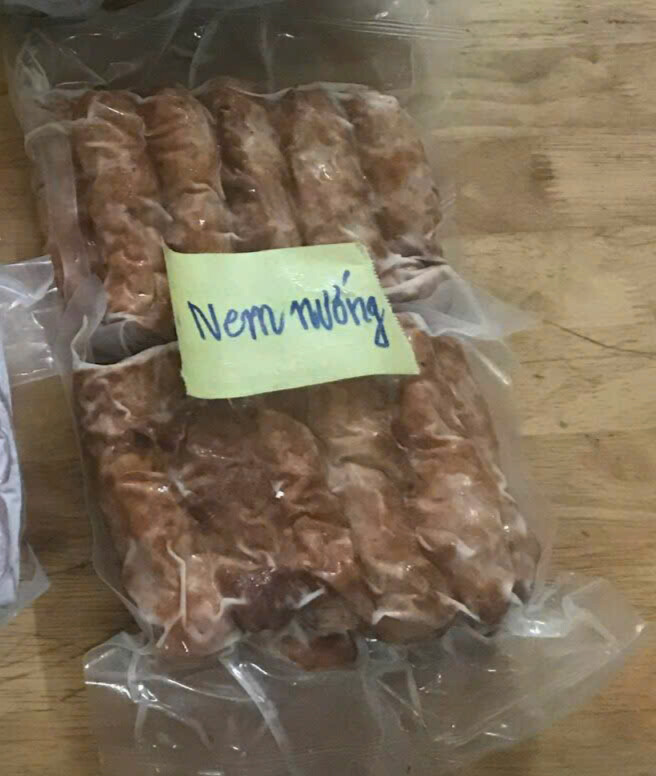 Nem nướng